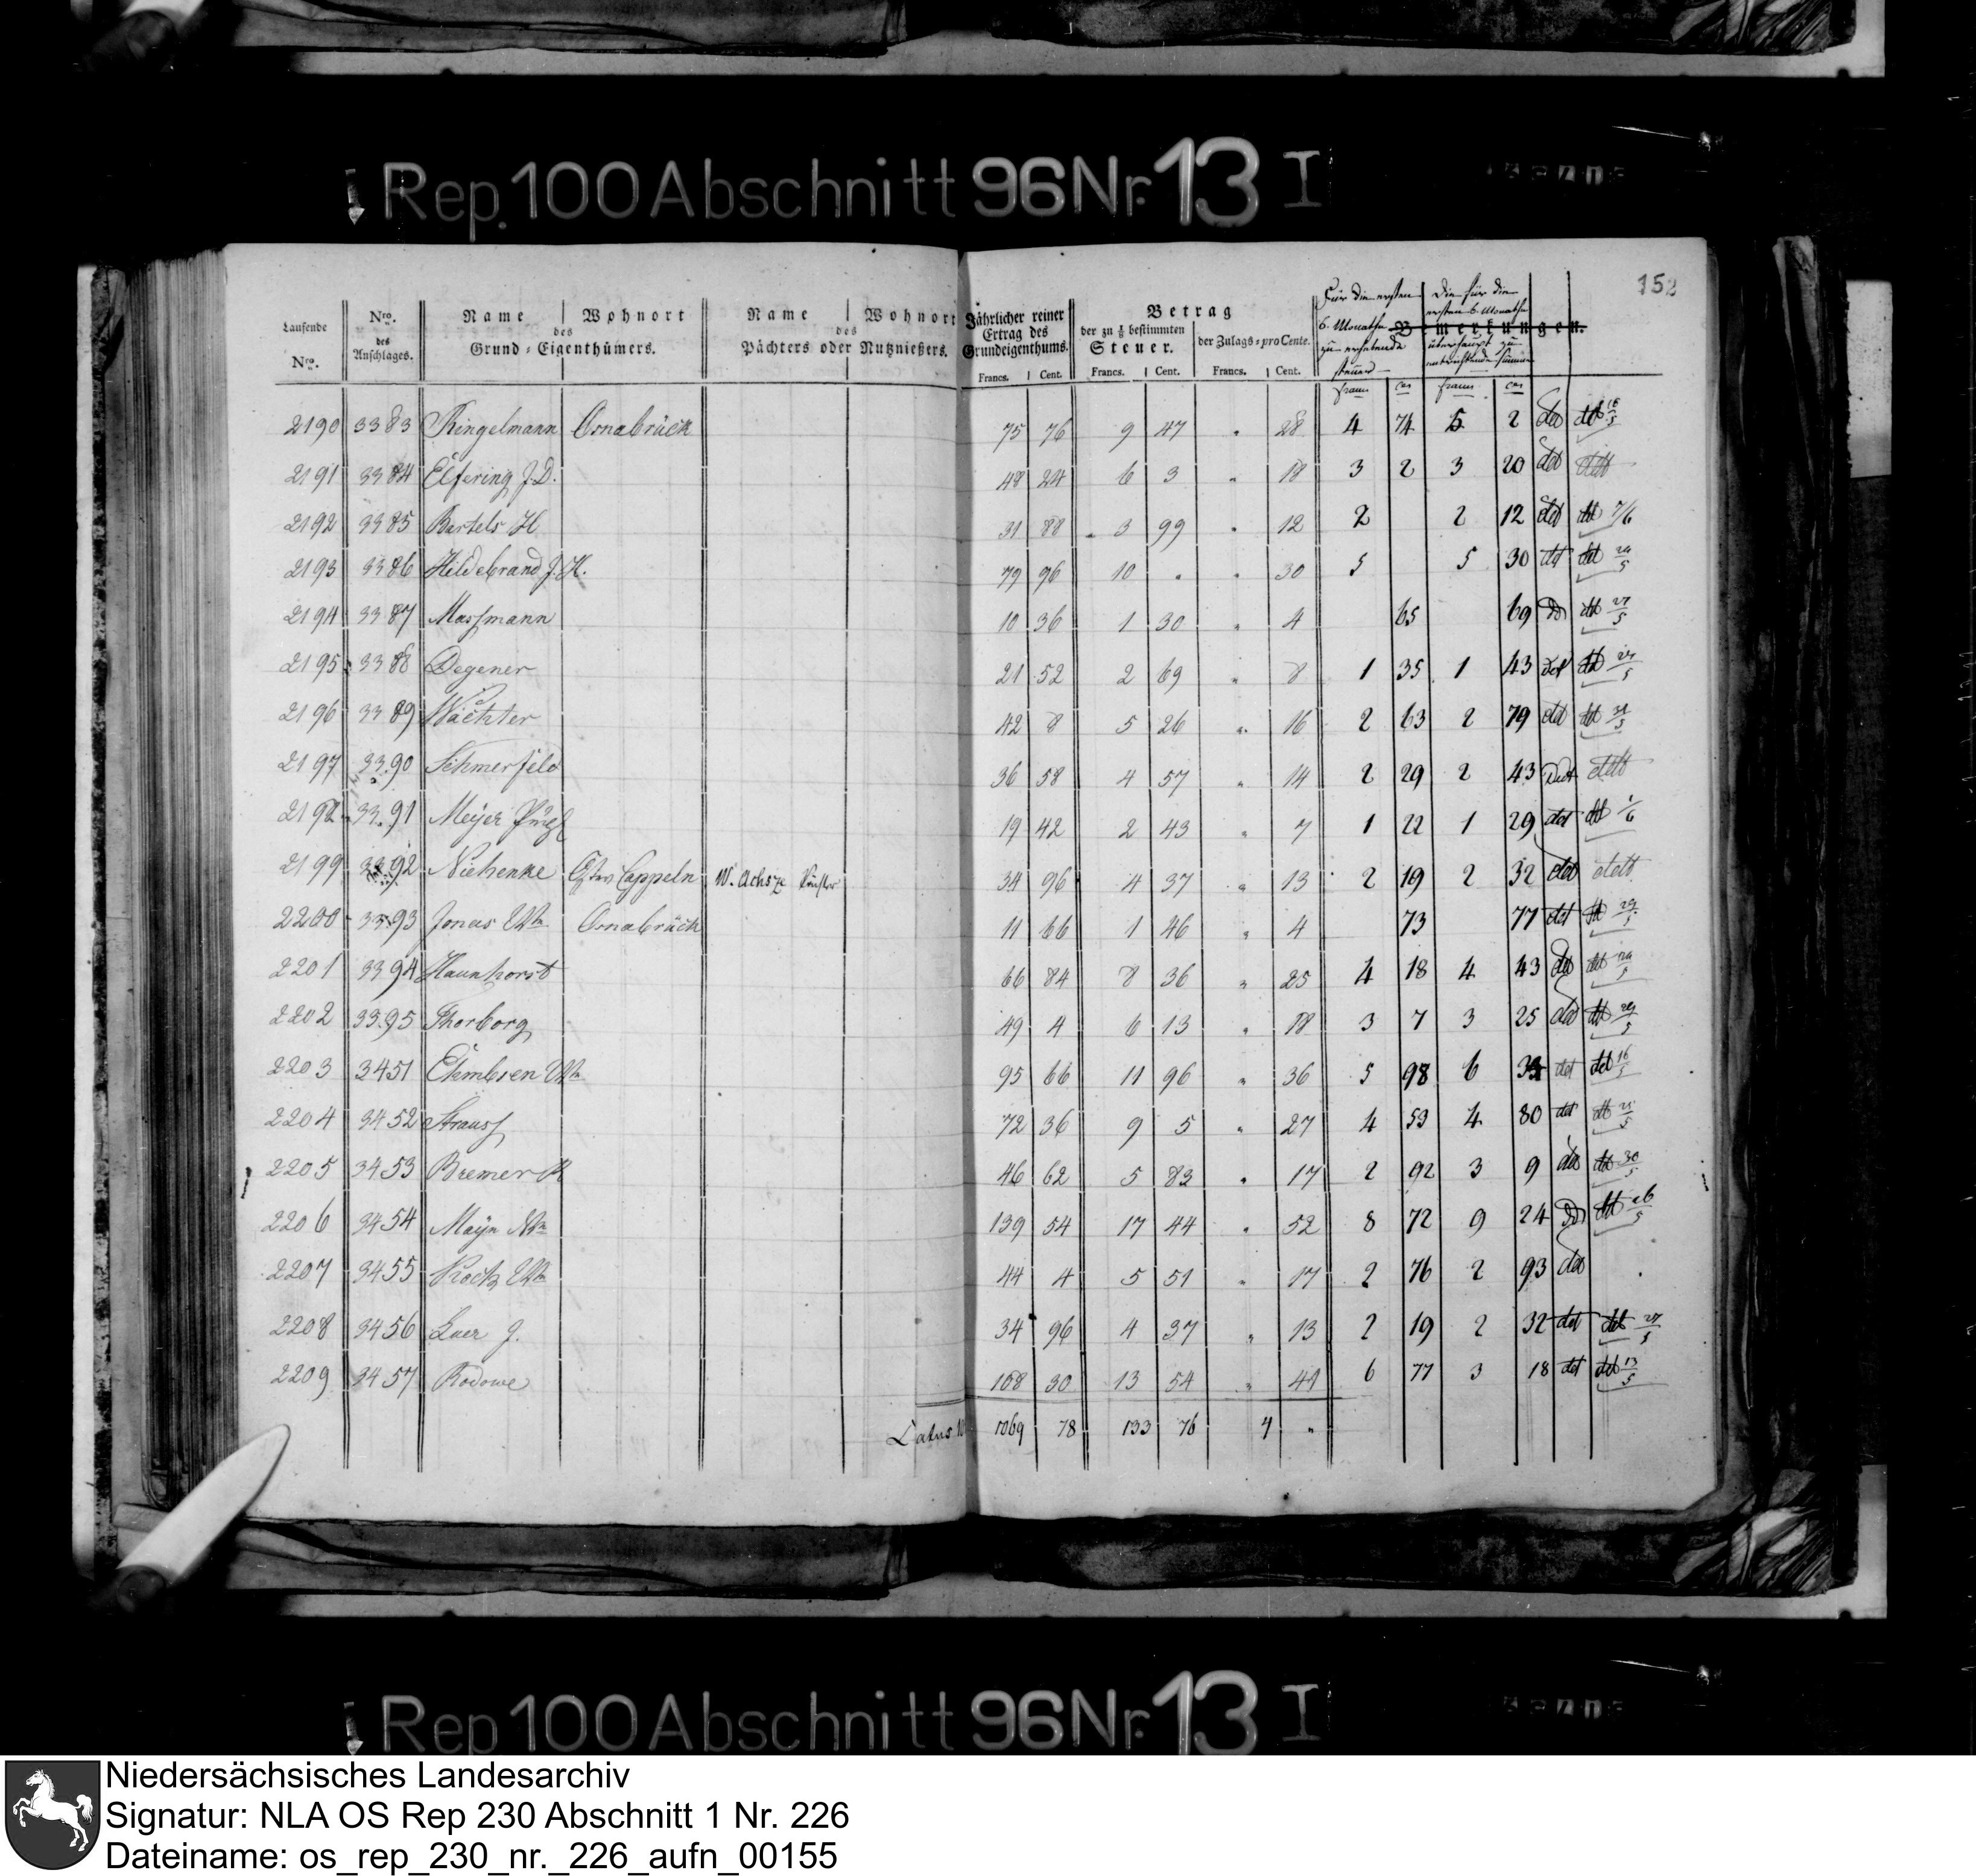 Rep. 100 Abschnitt 96 Nr. 13 I
152
Laufende Nro. Nro. des Anschlages. Name Wohnort des Grund-Eigenthümers. Name Wohnort des Pächters oder Nutznießers. Jährlicher reiner Ertrag des Grundeigenthums. Betrag der zu 1/8 bestimmten Steuer. der Zulags-pro Cente. Bemerkungen.
Für die ersten 6. Monathe zu erhebende Steuer
Die für die ersten 6. Monathe überhaupt zu entrichtende Summe
Francs. Cent. Francs. Cent. Francs. Cent. Francs Ces Francs Ces
2190 3383 Ringelmann Osnabrück 75 76 9 47 " 28 4 74 5 2 ddt ddt 18/5
2191 3384 Elfering J.D. 48 24 6 3 " 18 3 2 3 20 ddt
2192 3385 Bertels H 31 88 3 99 " 12 2 2 12 ddt ddt 7/6
2193 3386 Hildebrand J. H. 79 96 10 " " 30 5 5 30 ddt ddt
2194 3387 Massmann 10 36 1 30 " 4 65 69 ddt 27/5
2195 3388 Degener 21 52 2 69 " 8 1 35 1 43 ddt ddt
2196 3389 Wächter 42 8 5 26 " 16 2 63 2 79 ddt ddt
2197 3390 Schmerfeld 36 58 4 57 " 14 2 29 2 43
2198 3391 Meÿer 19 42 2 43 " 7 1 22 1 29 ddt ddt 1/6
2199 3392 Niehenke Osten Cappeln W. Achs 34 96 4 37 " 13 2 19 2 32 ddt
2200 3393 Jonas Ww Osnabrück 11 66 1 46 " 4 73 77 ddt ddt 29/5
2201 3394 Haunhorst 66 84 8 36 " 25 4 18 4 43 ddt ddt
2202 3395 Thorborg 49 4 6 13 " 18 3 7 3 25 ddt ddt 29/5
2203 3451 Ehmbsen Ww 95 66 11 96 " 36 5 98 6 34 ddt ddt 16/5
2204 3452 Strauss 72 36 9 5 " 27 4 53 4 80 ddt ddt 25/5
2205 3453 Bremer 46 62 5 83 " 17 2 92 3 9 ddt ddt 30/5
2206 3454 Maÿn 139 54 17 44 " 52 8 72 9 24 ddt 26/5
2207 3455 Kock Ww 44 4 5 51 " 17 2 76 2 93 ddt
2208 3456 Luer J. 34 96 4 37 " 13 2 19 2 32 ddt ddt 27/5
2209 3457 Rodowe 108 30 13 54 " 41 6 77 3 18 ddt ddt 13/5
Latus 1069 78 133 76 4 "
Rep 100 Abschnitt 96 Nr. 13 I
Niedersächsisches Landesarchiv
Signatur: NLA OS Rep 230 Abschnitt 1 Nr. 226
Dateiname: os_rep_230_nr._226_aufn_00155